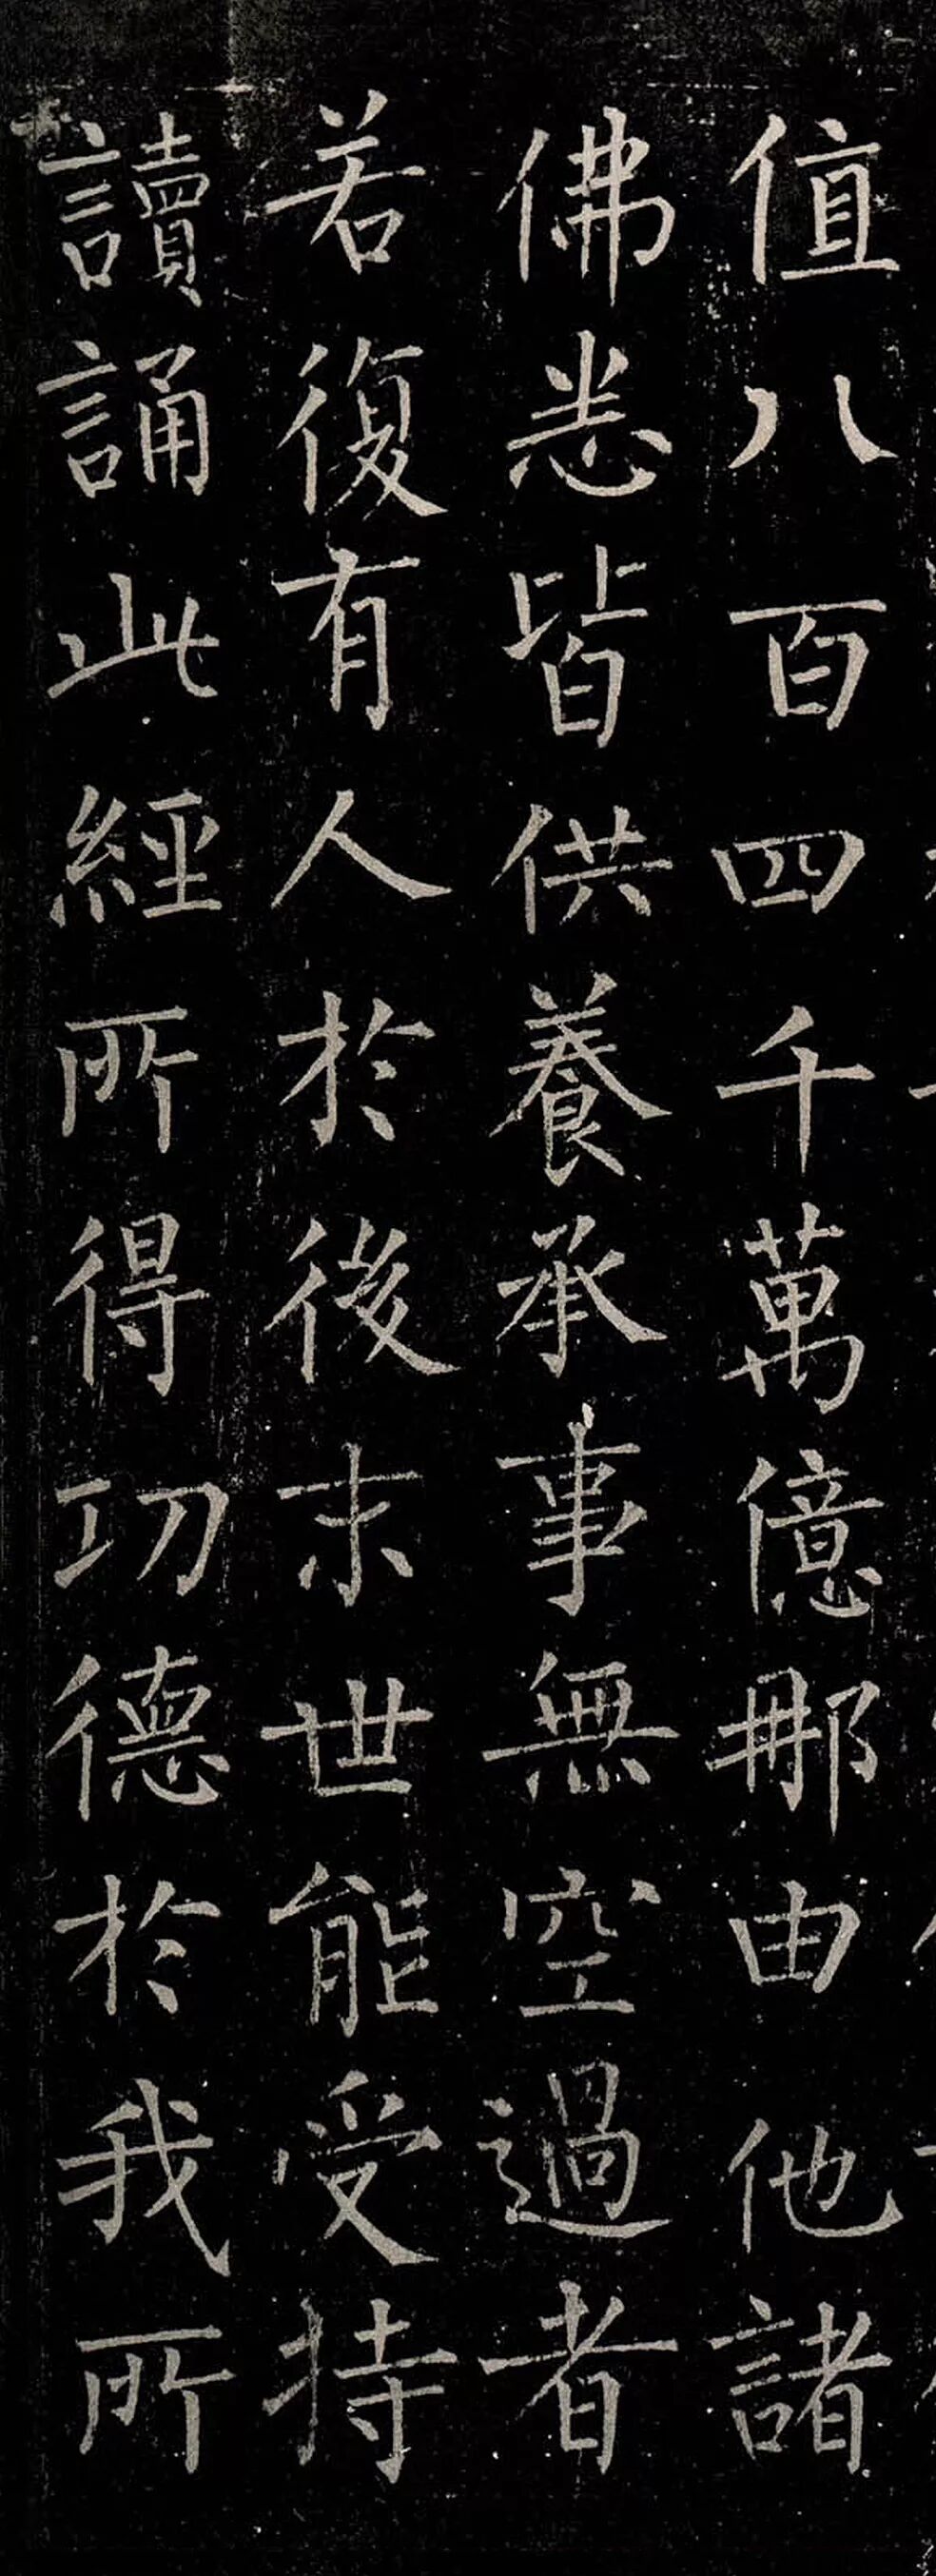 值八百四千萬億那由他諸
佛悉皆供養承事無空過者
若復有人於後末世能受持
讀誦此經所得功德於我所